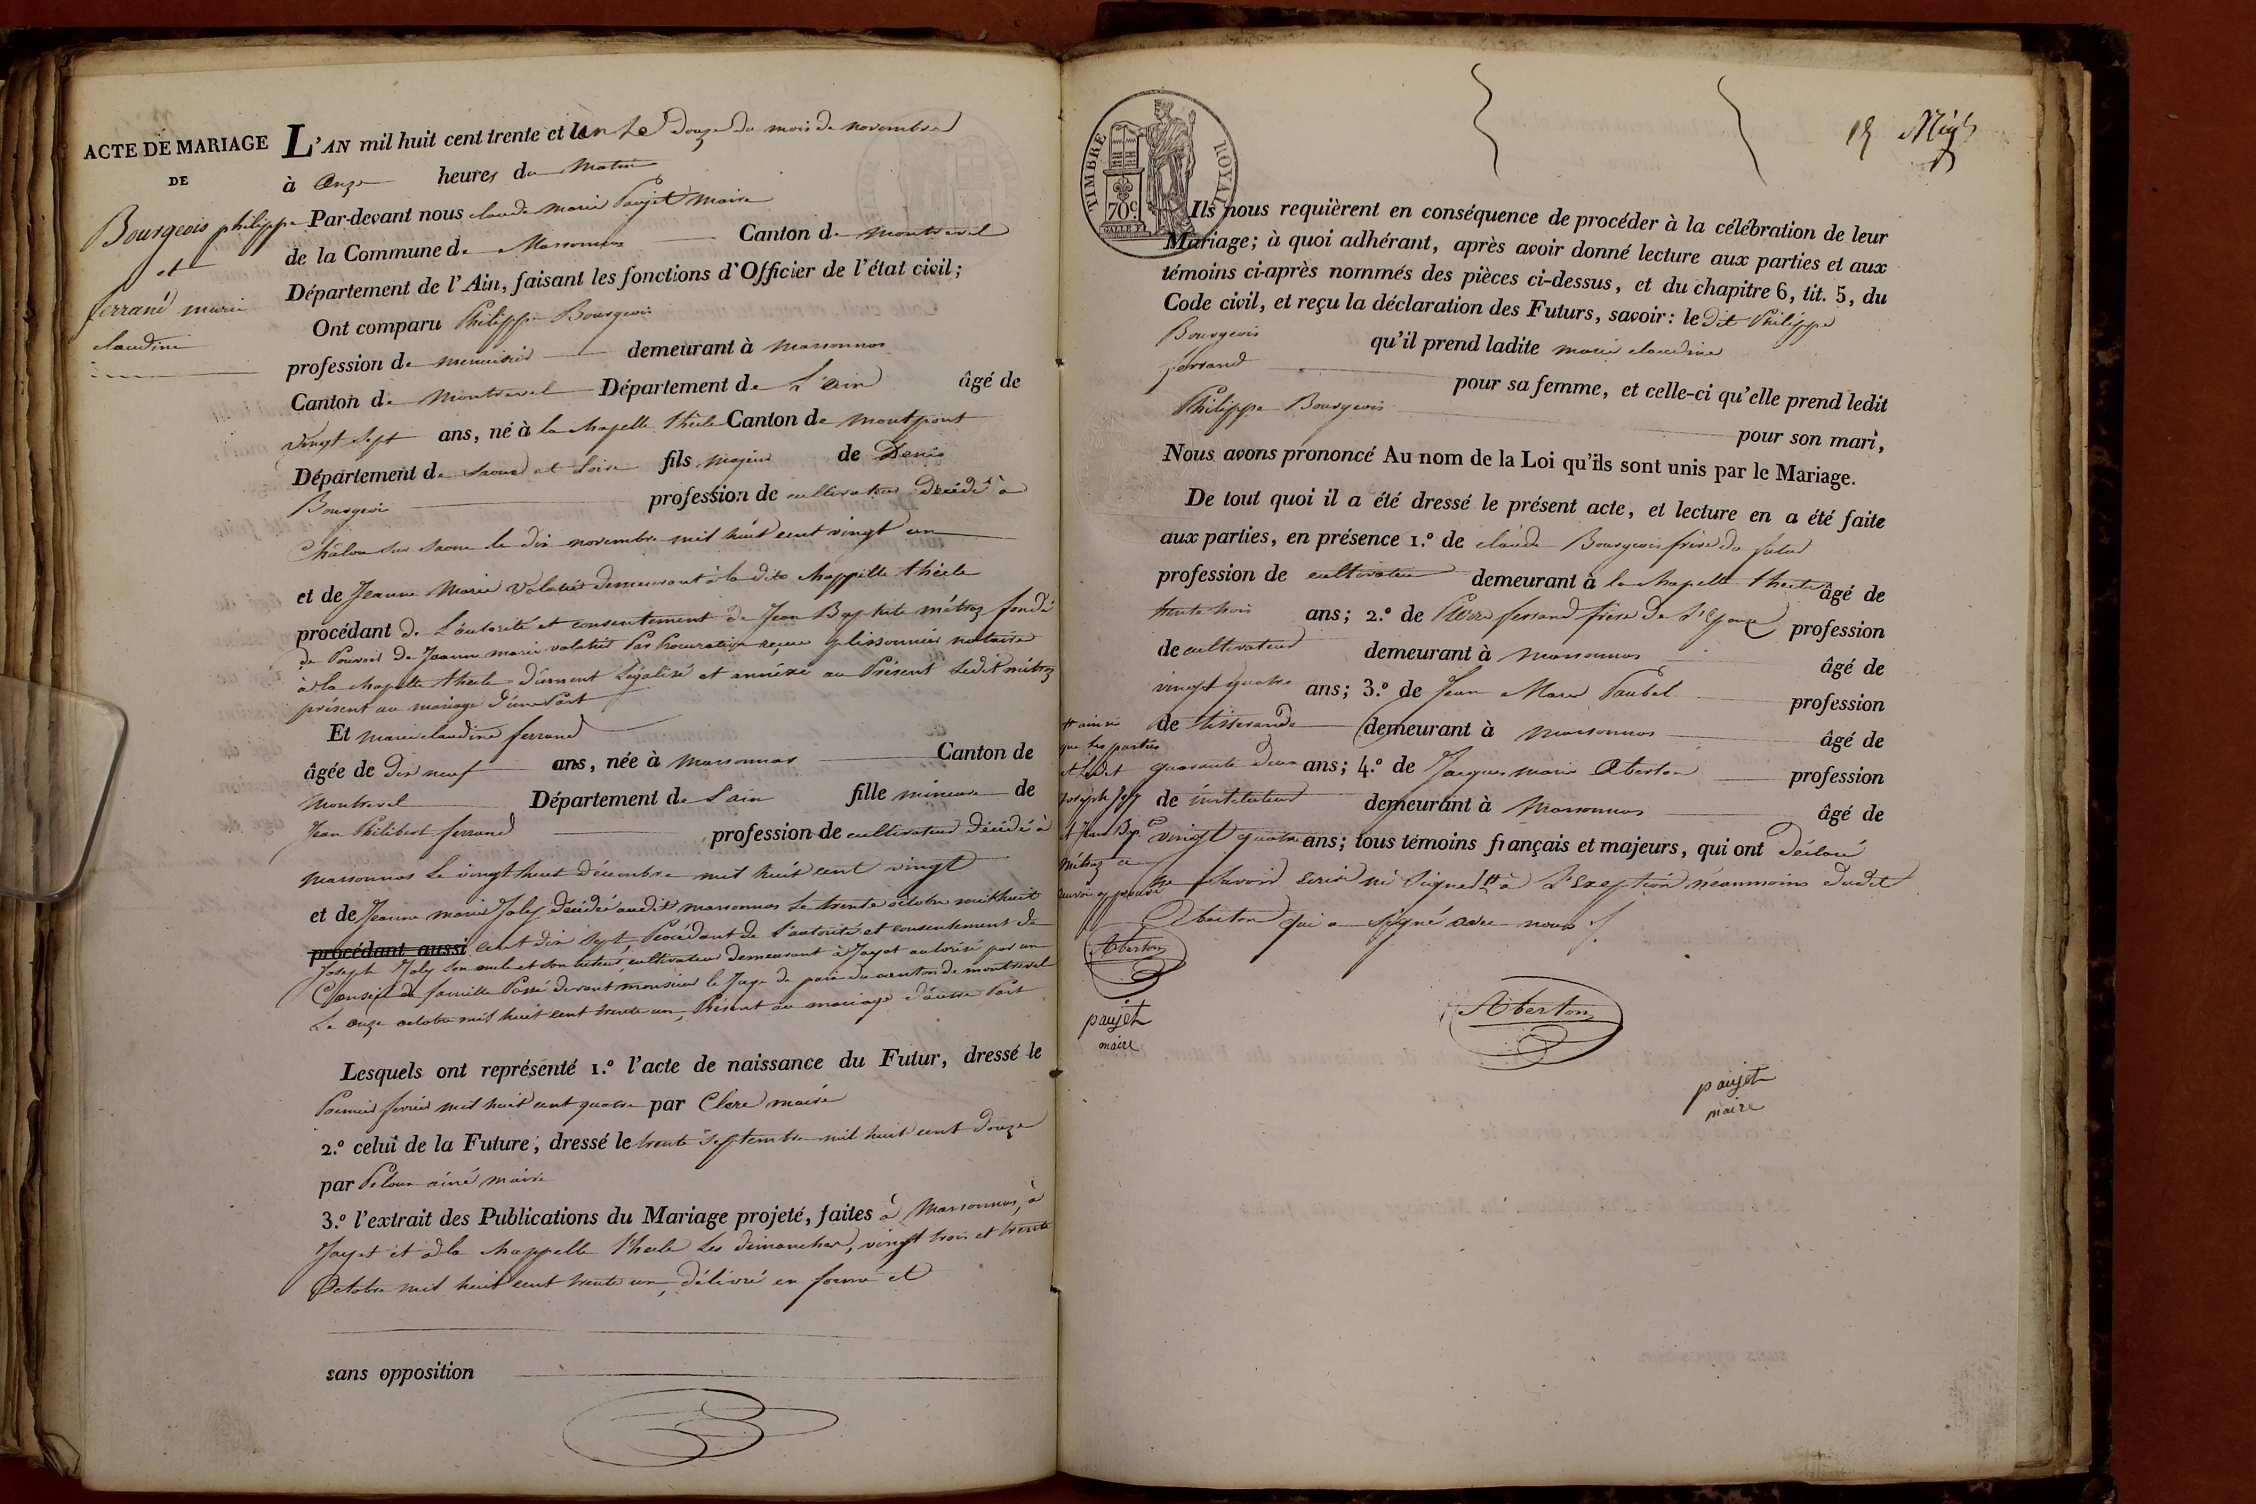 ACTE DE MARIAGE
DE
Bourgeois philippe
et
ferrand marie
claudine
L'AN mil huit cent trente et Un Le douze du mois de novembre
à Onze heures du Matin
Par-devant nous claude marie Paujet Maire
de la Commune de Marsonnas Canton de montrevel
Département de l'Ain, faisant les fonctions d'Officier de l'état civil;
Ont comparu Philippe Bourgeois
profession de menuisier demeurant à marsonnas
Canton de Montrevel Département de L'ain âgé de
vingt sept ans, né à la chapelle thècle Canton de montpont
Département de saone et Loire fils majeur de Denis
Bourgeois profession de cultivateur décédé à
Châlon sur saone le dix novembre mil huit cent vingt un
et de Jeanne Marie Volatier demeurant à la dite chappelle thècle
procédant de L'autorité et consentement de Jean Baptiste métroz fondé
de Pouvoir de Jeanne marie volatier Par Procuration reçue plissonnier notaire
à la chapelle thecle dûement Légalisé et annéxé au Présent Ledit métroz
présent au mariage d'une Part
Et marie claudine ferrand
âgée de dix neuf ans, née à marsonnas Canton de
montrevel Département de L'ain fille mineure de
Jean Philibert ferrand profession de cultivateur décédé à
marsonnas Le vingt huit décembre mil huit cent vingt
et de Jeanne marie Joly décédée audit marsonnas Le trente octobre mil huit
procédant aussi cent dix sept Procédant de l'autorité et consentement de
Joseph Joly son oncle et son tuteur, cultivateur demeurant à Jayat autorisé par un
Conseil de famille Passé devant monsieur le Juge de paix du canton de montrevel
Le onze octobre mil huit cent trente un, Présent au mariage d'autre Part
Lesquels ont représenté 1.º l'acte de naissance du Futur, dressé le
Premier fevrier mil huit cent quatre par Clere maire
2.º celui de la Future, dressé le trente septembre mil huit cent douze
par Péloux ainé maire
3.º l'extrait des Publications du Mariage projeté, faites à Marsonnas, à
Jayat et à la chappelle thecle Les dimanches, vingt trois et trente
Octobre mil huit cent trente un, délivré en forme et
sans opposition
TIMBRE ROYAL
70 c
15
Ils nous requièrent en conséquence de procéder à la célébration de leur
Mariage; à quoi adhérant, après avoir donné lecture aux parties et aux
témoins ci-après nommés des pièces ci-dessus, et du chapitre 6, tit. 5, du
Code civil, et reçu la déclaration des Futurs, savoir: le dit Philippe
Bourgeois qu'il prend ladite marie claudine
ferrand pour sa femme, et celle-ci qu'elle prend ledit
Philippe Bourgeois pour son mari,
Nous avons prononcé Au nom de la Loi qu'ils sont unis par le Mariage.
De tout quoi il a été dressé le présent acte, et lecture en a été faite
aux parties, en présence 1.º de claude Bourgeois frère du futur
profession de cultivateur demeurant à la chapelle thecle âgé de
trente trois ans; 2.º de Pierre ferrand frère de L'épouze profession
de cultivateur demeurant à marsonnas âgé de
vingt quatre ans; 3.º de Jean Marie Paubel profession
de tisserande demeurant à marsonnas âgé de
quarante deux ans; 4.º de Jacques marie Aberton profession
de instituteur demeurant à Marsonnas âgé de
vingt quatre ans; tous témoins français et majeurs, qui ont déclaré
ne savoir écrire ni signer # à L'exeption néanmoins dudit
Aberton qui a signé avec nous
# ainsi
que les parties
et Ledit
Joseph Joly
et Jean Bp.te
métroz
Aberton
paujet
maire
Aberton
paujet
maire